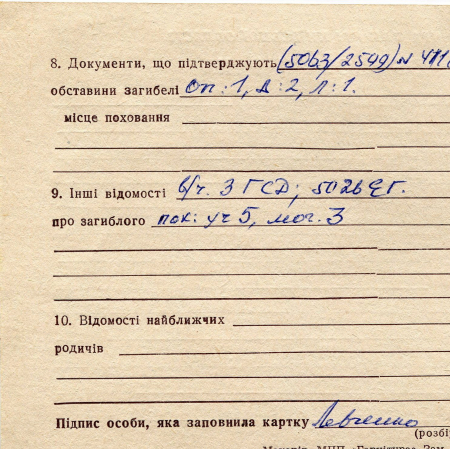 8. Документи, що підтверджують (5063/2549) N 411
обставини загибелі Оп: 1, д: 2, л: 1.
місце поховання
9. Інші відомості в/ч. 3 ГСД; 50269 Г.
про загиблого пох: уч 5, мог. 3
10. Відомості найближчих
родичів
Підпис особи, яка заповнила картку Левченко
(розбі